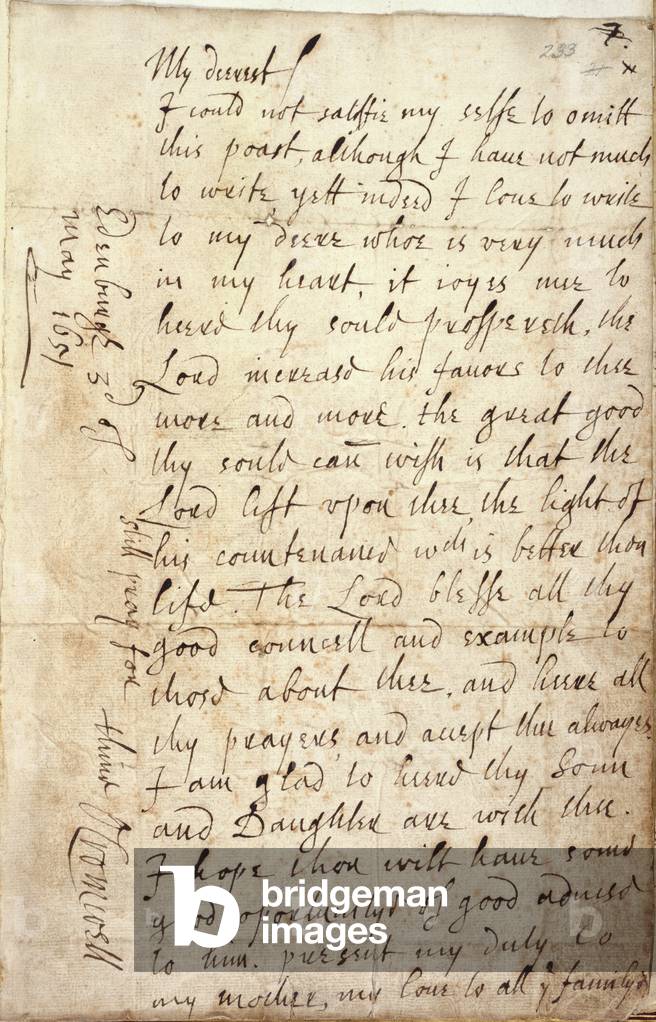 233
7.
My deerest
I could not satisfie my selfe to omitt
this poast, although I haue not much
to write yett indeed I loue to write
to my deere whoe is very much
in my heart, it ioyes mee to
heere thy soule prospereth, the
Lord increase his fauors to thee
more and more. the great good
thy soule can wish is that the
Lord lift vpon thee the light of
his countenance wch is better then
life. The Lord blesse all thy
good councell and example to
those about thee, and heere all
thy prayers and accept thee alwayes.
I am glad to heere thy Sonn
and Daughter are with thee.
I hope thou wilt haue some
good oportunitye of good aduise
to him. present my duty to
my mother, my loue to all ye familye
still pray for
thine
OCromwell
Edenburgh 3d of
May 1651
bridgeman
images
b